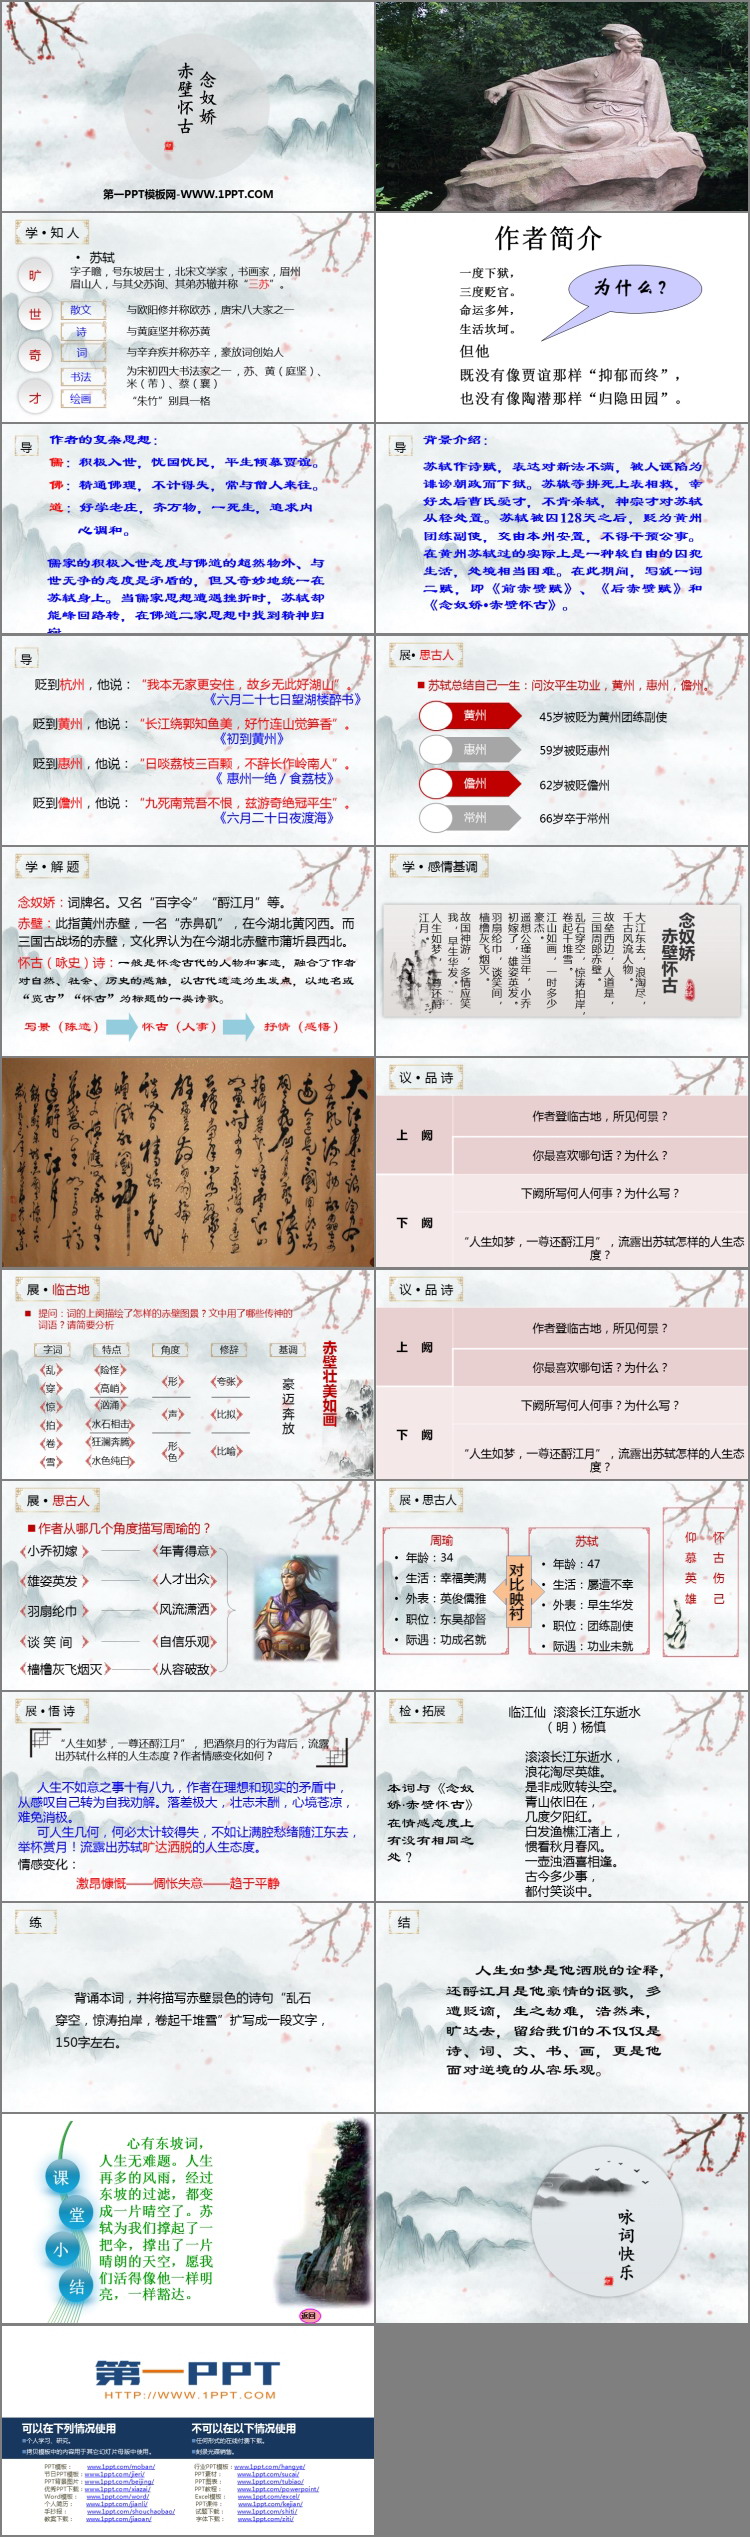 念奴娇
赤壁怀古
第一PPT模板网-WWW.1PPT.COM
学•知人
旷
世
奇
才
• 苏轼
字子瞻，号东坡居士，北宋文学家，书画家，眉州
眉山人，与其父苏询、其弟苏辙并称“三苏”。
散文
与欧阳修并称欧苏，唐宋八大家之一
诗
与黄庭坚并称苏黄
词
与辛弃疾并称苏辛，豪放词创始人
书法
为宋初四大书法家之一，苏、黄（庭坚）、
米（芾）、蔡（襄）
绘画
“朱竹”别具一格
作者简介
一度下狱，
三度贬官。
命运多舛，
生活坎坷。
但他
既没有像贾谊那样“抑郁而终”，
也没有像陶潜那样“归隐田园”。
为什么？
导
作者的复杂思想：
儒：积极入世，忧国忧民，平生倾慕贾谊。
佛：精通佛理，不计得失，常与僧人来往。
道：好学老庄，齐万物，一死生，追求内
心调和。
儒家的积极入世态度与佛道的超然物外、与
世无争的态度是矛盾的，但又奇妙地统一在
苏轼身上。当儒家思想遭遇挫折时，苏轼却
能峰回路转，在佛道二家思想中找到精神归
宿
导
背景介绍：
苏轼作诗赋，表达对新法不满，被人诬陷为
诽谤朝政而下狱。苏辙等拼死上表相救，幸
好太后曹氏爱才，不肯杀轼，神宗才对苏轼
从轻处置。苏轼被囚128天之后，贬为黄州
团练副使，交由本州安置，不得干预公事。
在黄州苏轼过的实际上是一种较自由的囚犯
生活，处境相当困难。在此期间，写就一词
二赋，即《前赤壁赋》、《后赤壁赋》和
《念奴娇•赤壁怀古》。
导
贬到杭州，他说：“我本无家更安住，故乡无此好湖山”。
《六月二十七日望湖楼醉书》
贬到黄州，他说：“长江绕郭知鱼美，好竹连山觉笋香”。
《初到黄州》
贬到惠州，他说：“日啖荔枝三百颗，不辞长作岭南人”。
《 惠州一绝 / 食荔枝》
贬到儋州，他说：“九死南荒吾不恨，兹游奇绝冠平生”。
《六月二十日夜渡海》
展•思古人
■ 苏轼总结自己一生：问汝平生功业，黄州，惠州，儋州。
黄州
45岁被贬为黄州团练副使
惠州
59岁被贬惠州
儋州
62岁被贬儋州
常州
66岁卒于常州
学•解题
念奴娇：词牌名。又名“百字令”“酹江月”等。
赤壁：此指黄州赤壁，一名“赤鼻矶”，在今湖北黄冈西。而
三国古战场的赤壁，文化界认为在今湖北赤壁市蒲圻县西北。
怀古（咏史）诗：一般是怀念古代的人物和事迹，融合了作者
对自然、社会、历史的感触，以古代遗迹为生发点，以地名或
“览古”“怀古”为标题的一类诗歌。
写景（陈迹）
怀古（人事）
抒情（感悟）
学•感情基调
念奴娇
赤壁怀古
大江东去，浪淘尽，
千古风流人物。
故垒西边，人道是，
三国周郎赤壁。
乱石穿空，惊涛拍岸，
卷起千堆雪。
江山如画，一时多少
豪杰。
遥想公瑾当年，小乔
初嫁了，雄姿英发。
羽扇纶巾，谈笑间，
樯橹灰飞烟灭。
故国神游，多情应笑
我，早生华发。
人生如梦，一尊还酹
江月。
议•品诗
上 阙
作者登临古地，所见何景？
你最喜欢哪句话？为什么？
下 阙
下阙所写何人何事？为什么写？
“人生如梦，一尊还酹江月”，流露出苏轼怎样的人生态
度？
展•临古地
■ 提问：词的上阕描绘了怎样的赤壁图景？文中用了哪些传神的
词语？请简要分析
字词
特点
角度
修辞
基调
乱
穿
惊
拍
卷
雪
险怪
高峭
汹涌
水石相击
狂澜奔腾
水色纯白
形
声
形色
夸张
比拟
比喻
豪迈奔放
赤壁壮美如画
议•品诗
上 阙
作者登临古地，所见何景？
你最喜欢哪句话？为什么？
下 阙
下阙所写何人何事？为什么写？
“人生如梦，一尊还酹江月”，流露出苏轼怎样的人生态
度？
展•思古人
■作者从哪几个角度描写周瑜的？
小乔初嫁
年青得意
雄姿英发
人才出众
羽扇纶巾
风流潇洒
谈 笑 间
自信乐观
樯橹灰飞烟灭
从容破敌
展•思古人
周瑜
• 年龄：34
• 生活：幸福美满
• 外表：英俊儒雅
• 职位：东吴都督
• 际遇：功成名就
对比映衬
苏轼
• 年龄：47
• 生活：屡遭不幸
• 外表：早生华发
• 职位：团练副使
• 际遇：功业未就
怀古伤己
仰慕英雄
展•悟诗
“人生如梦，一尊还酹江月”，把酒祭月的行为背后，流露
出苏轼什么样的人生态度？作者情感变化如何？
人生不如意之事十有八九，作者在理想和现实的矛盾中，
从感叹自己转为自我劝解。落差极大，壮志未酬，心境苍凉，
难免消极。
可人生几何，何必太计较得失，不如让满腔愁绪随江东去，
举杯赏月！流露出苏轼旷达洒脱的人生态度。
情感变化：
激昂慷慨——惆怅失意——趋于平静
检•拓展
临江仙 滚滚长江东逝水
（明）杨慎
本词与《念奴
娇·赤壁怀古》
在情感态度上
有没有相同之
处？
滚滚长江东逝水，
浪花淘尽英雄。
是非成败转头空。
青山依旧在，
几度夕阳红。
白发渔樵江渚上，
惯看秋月春风。
一壶浊酒喜相逢。
古今多少事，
都付笑谈中。
练
背诵本词，并将描写赤壁景色的诗句“乱石
穿空，惊涛拍岸，卷起千堆雪”扩写成一段文字，
150字左右。
结
人生如梦是他洒脱的诠释，
还酹江月是他豪情的讴歌，多
遭贬谪，生之劫难，浩然来，
旷达去，留给我们的不仅仅是
诗、词、文、书、画，更是他
面对逆境的从容乐观。
课
堂
小
结
心有东坡词，
人生无难题。人生
再多的风雨，经过
东坡的过滤，都变
成一片晴空了。苏
轼为我们撑起了一
把伞，撑出了一片
晴朗的天空，愿我
们活得像他一样明
亮，一样豁达。
返回
咏词快乐
第一PPT
HTTP://WWW.1PPT.COM
可以在下列情况使用
■个人学习、研究。
■拷贝模板中的内容用于其它幻灯片母版中使用。
不可以在以下情况使用
■任何形式的在线付费下载。
■刻录光碟销售。
PPT模板： www.1ppt.com/moban/
行业PPT模板：www.1ppt.com/hangye/
节日PPT模板：www.1ppt.com/jieri/
PPT素材： www.1ppt.com/sucai/
PPT背景图片：www.1ppt.com/beijing/
PPT图表： www.1ppt.com/tubiao/
优秀PPT下载：www.1ppt.com/xiazai/
PPT教程： www.1ppt.com/powerpoint/
Word模板： www.1ppt.com/word/
Excel模板：www.1ppt.com/excel/
个人简历： www.1ppt.com/jianli/
PPT课件： www.1ppt.com/kejian/
手抄报： www.1ppt.com/shouchaobao/
试题下载：www.1ppt.com/shiti/
教案下载：www.1ppt.com/jiaoan/
字体下载：www.1ppt.com/ziti/